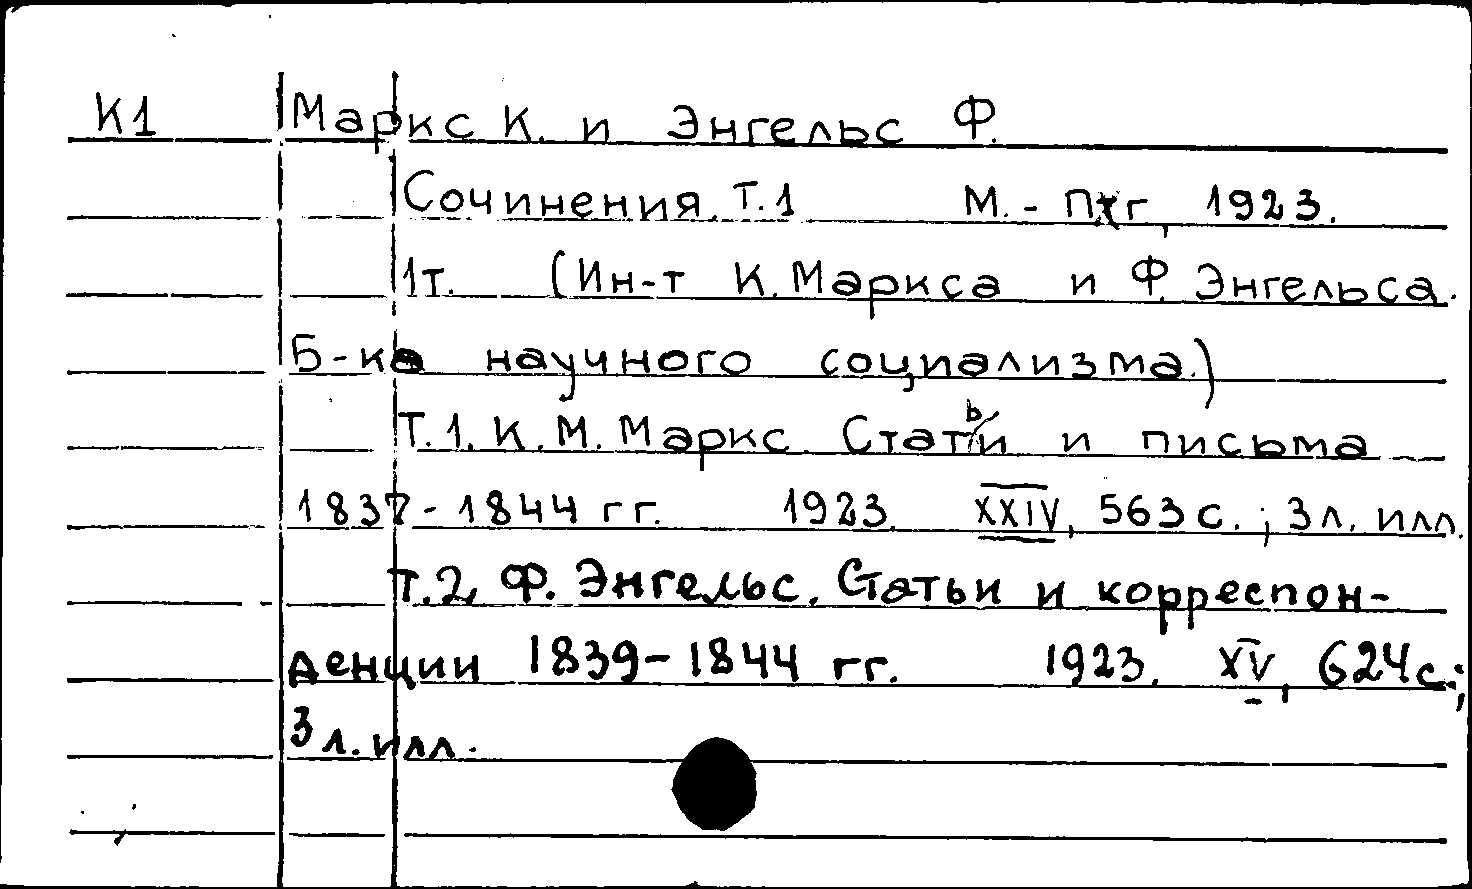 К1 Маркс К. и Энгельс Ф.
Сочинения. Т.1 М.-Птг, 1923.
1т. (Ин-т К.Маркса и Ф.Энгельса.
Б-ка научного социализма.)
Т.1. К.М.Маркс. Статьи и письма
1837-1844 гг. 1923. XXIV, 563с.; 3л. илл.
Т.2, Ф. Энгельс. Статьи и корреспон-
денции 1839-1844 гг. 1923. XV, 624с.;
3л. илл.